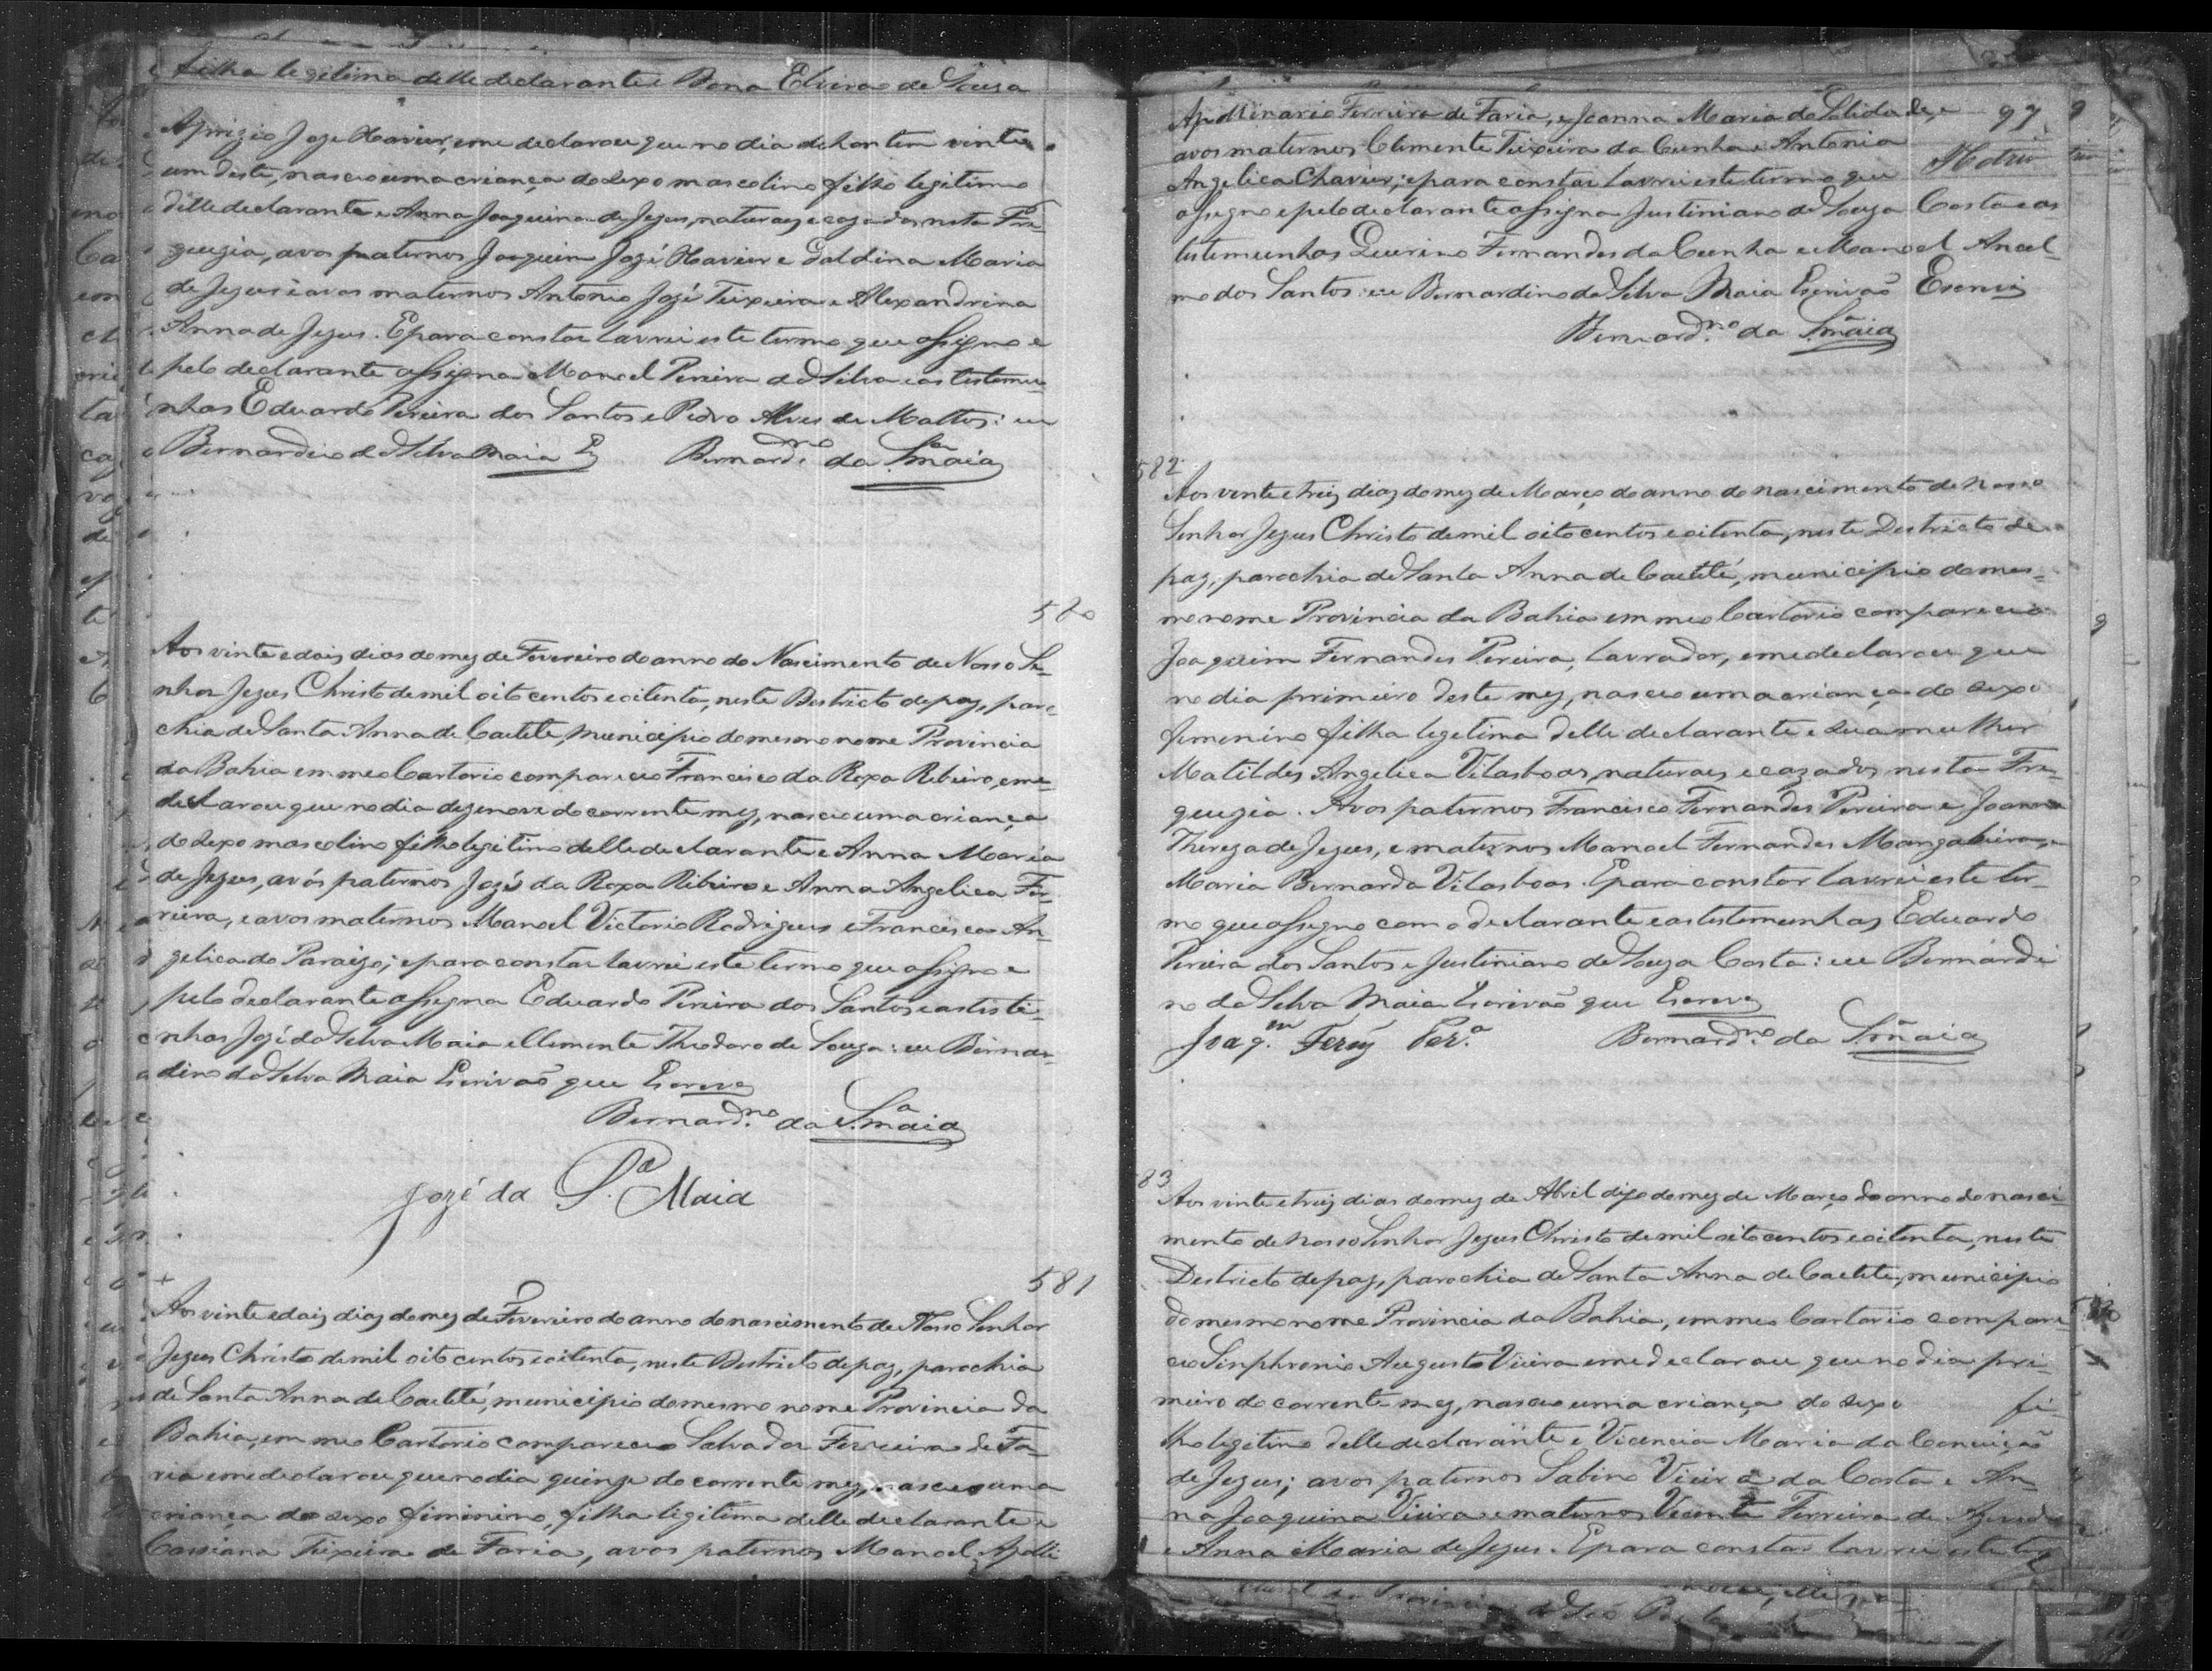 filha legitima delle declarante e Dona Elvira de Souza
Aprizio Joze Xavier, e me declarou que no dia de hontem vinte e
um deste, nasceo uma criança do sexo mascolino filho legitimo
delle declarante e Anna Joaquina de Jezus, naturaes e cazados nesta Fre-
guezia, avos paternos Joaquim Jozé Xavier e Galdina Maria
de Jezus e avos maternos Antonio Jozé Teixeira e Alexandrina
Anna de Jezus. E para constar lavrei este termo que assigno e
pelo declarante assigna Manoel Pereira da Silva e as testemu-
nhas Eduardo Pereira dos Santos e Pedro Alves de Mattos: eu
Bernardino da Silva Maia E Bernard.no da S.a Maia
580
Aos vinte e dois dias do mez de Fevereiro do anno do Nascimento de Nosso Se-
nhor Jezus Christo de mil oito centos e oitenta, neste Destricto de paz, paro-
chia de Santa Anna de Caetité, municipio do mesmo nome Provincia
da Bahia em meo Cartorio compareceo Francisco da Roxa Ribeiro, e me
declarou que no dia dezenove do corrente mez, nasceo uma criança
do sexo mascolino filho legitimo delle declarante e Anna Maria
de Jezus, avós paternos Jozé da Roxa Ribeiro e Anna Angelica Fer-
reira, e avos maternos Manoel Victorio Rodrigues e Francisca An-
gelica do Paraizo; e para constar lavrei este termo que assigno e
pelo declarante assigna Eduardo Pereira dos Santos e as teste-
nhas Jozé da Silva Maia e Clemente Theodoro de Souza: eu Bernar-
dino da Silva Maia Escrivaõ que Escrevy
Bernard.no da S.a Maia
Jozé da S.a Maia
581
Aos vinte e dois dias do mez de Fevereiro do anno do nascimento de Nosso Senhor
Jezus Christo de mil oito centos e oitenta, neste Destricto de paz, parochia
de Santa Anna de Caetité, municipio do mesmo nome Provincia da
Bahia, em meo Cartorio compareceo Salvador Ferreira de Fa-
ria e me declarou que no dia quinze do corrente mez, nasceo uma
criança do sexo feminino, filha legitima delle declarante e
Cassiana Teixeira de Faria, avos paternos Manoel Apolli
97
Apollinario Ferreira de Faria, e Joanna Maria da Solidade, e
avos maternos Clemente Teixeira da Cunha e Antonia
Angelica Chavier; e para constar lavrei este termo que
assigno e pelo declarante assigna Justiniano de Souza Costa e as
testemunhas Querino Fernandes da Cunha e Manoel Ancel-
mo dos Santos: eu Bernardino da Silva Maia Escrivaõ Escrevy
Bernard.no da S.a Maia
582
Aos vinte e treis dias do mez de Março do anno do nascimento de nosso
Senhor Jezus Christo de mil oito centos e oitenta, neste Destricto de
paz, parochia de Santa Anna de Caetité, municipio do mes-
mo nome Provincia da Bahia em meo Cartorio compareceo
Joaquim Fernandes Pereira, lavrador, e me declarou que
no dia primeiro deste mez, nasceo uma criança do sexo
femenino filha legitima delle declarante e sua mulher
Matildes Angelica Vilasboas, naturaes e cazados nesta Fre-
guezia. Avos paternos Francisco Fernandes Pereira e Joanna
Thereza de Jezus, e maternos Manoel Fernandes Mangabeira, e
Maria Bernarda Vilasboas. E para constar lavrei este ter-
mo que assigno com o declarante e as testemunhas Eduardo
Pereira dos Santos e Justiniano de Souza Costa: eu Bernardi
no da Silva Maia Escrivaõ que Escrevy
Joaq.m Ferz Per.a Bernard.no da S.a Maia
83
Aos vinte e treis dias do mez de Abril digo do mez de Março do anno do nasci-
mento de nosso Senhor Jezus Christo de mil oito centos e oitenta, neste
Destricto de paz, parochia de Santa Anna de Caetite, municipio
do mesmo nome Provincia da Bahia, em meo Cartorio compare-
ceo Sinphronio Augusto Vieira e me declarou que no dia pri-
meiro do corrente mez, nasceo uma criança do sexo fi-
lho legitimo delle declarante e Vicencia Maria da Conceição
de Jezus; avos paternos Sabino Vieira da Costa e An-
na Joaquina Vieira e maternos Vicente Ferreira de Azevedo
e Anna Maria de Jezus. E para constar lavrei este ter